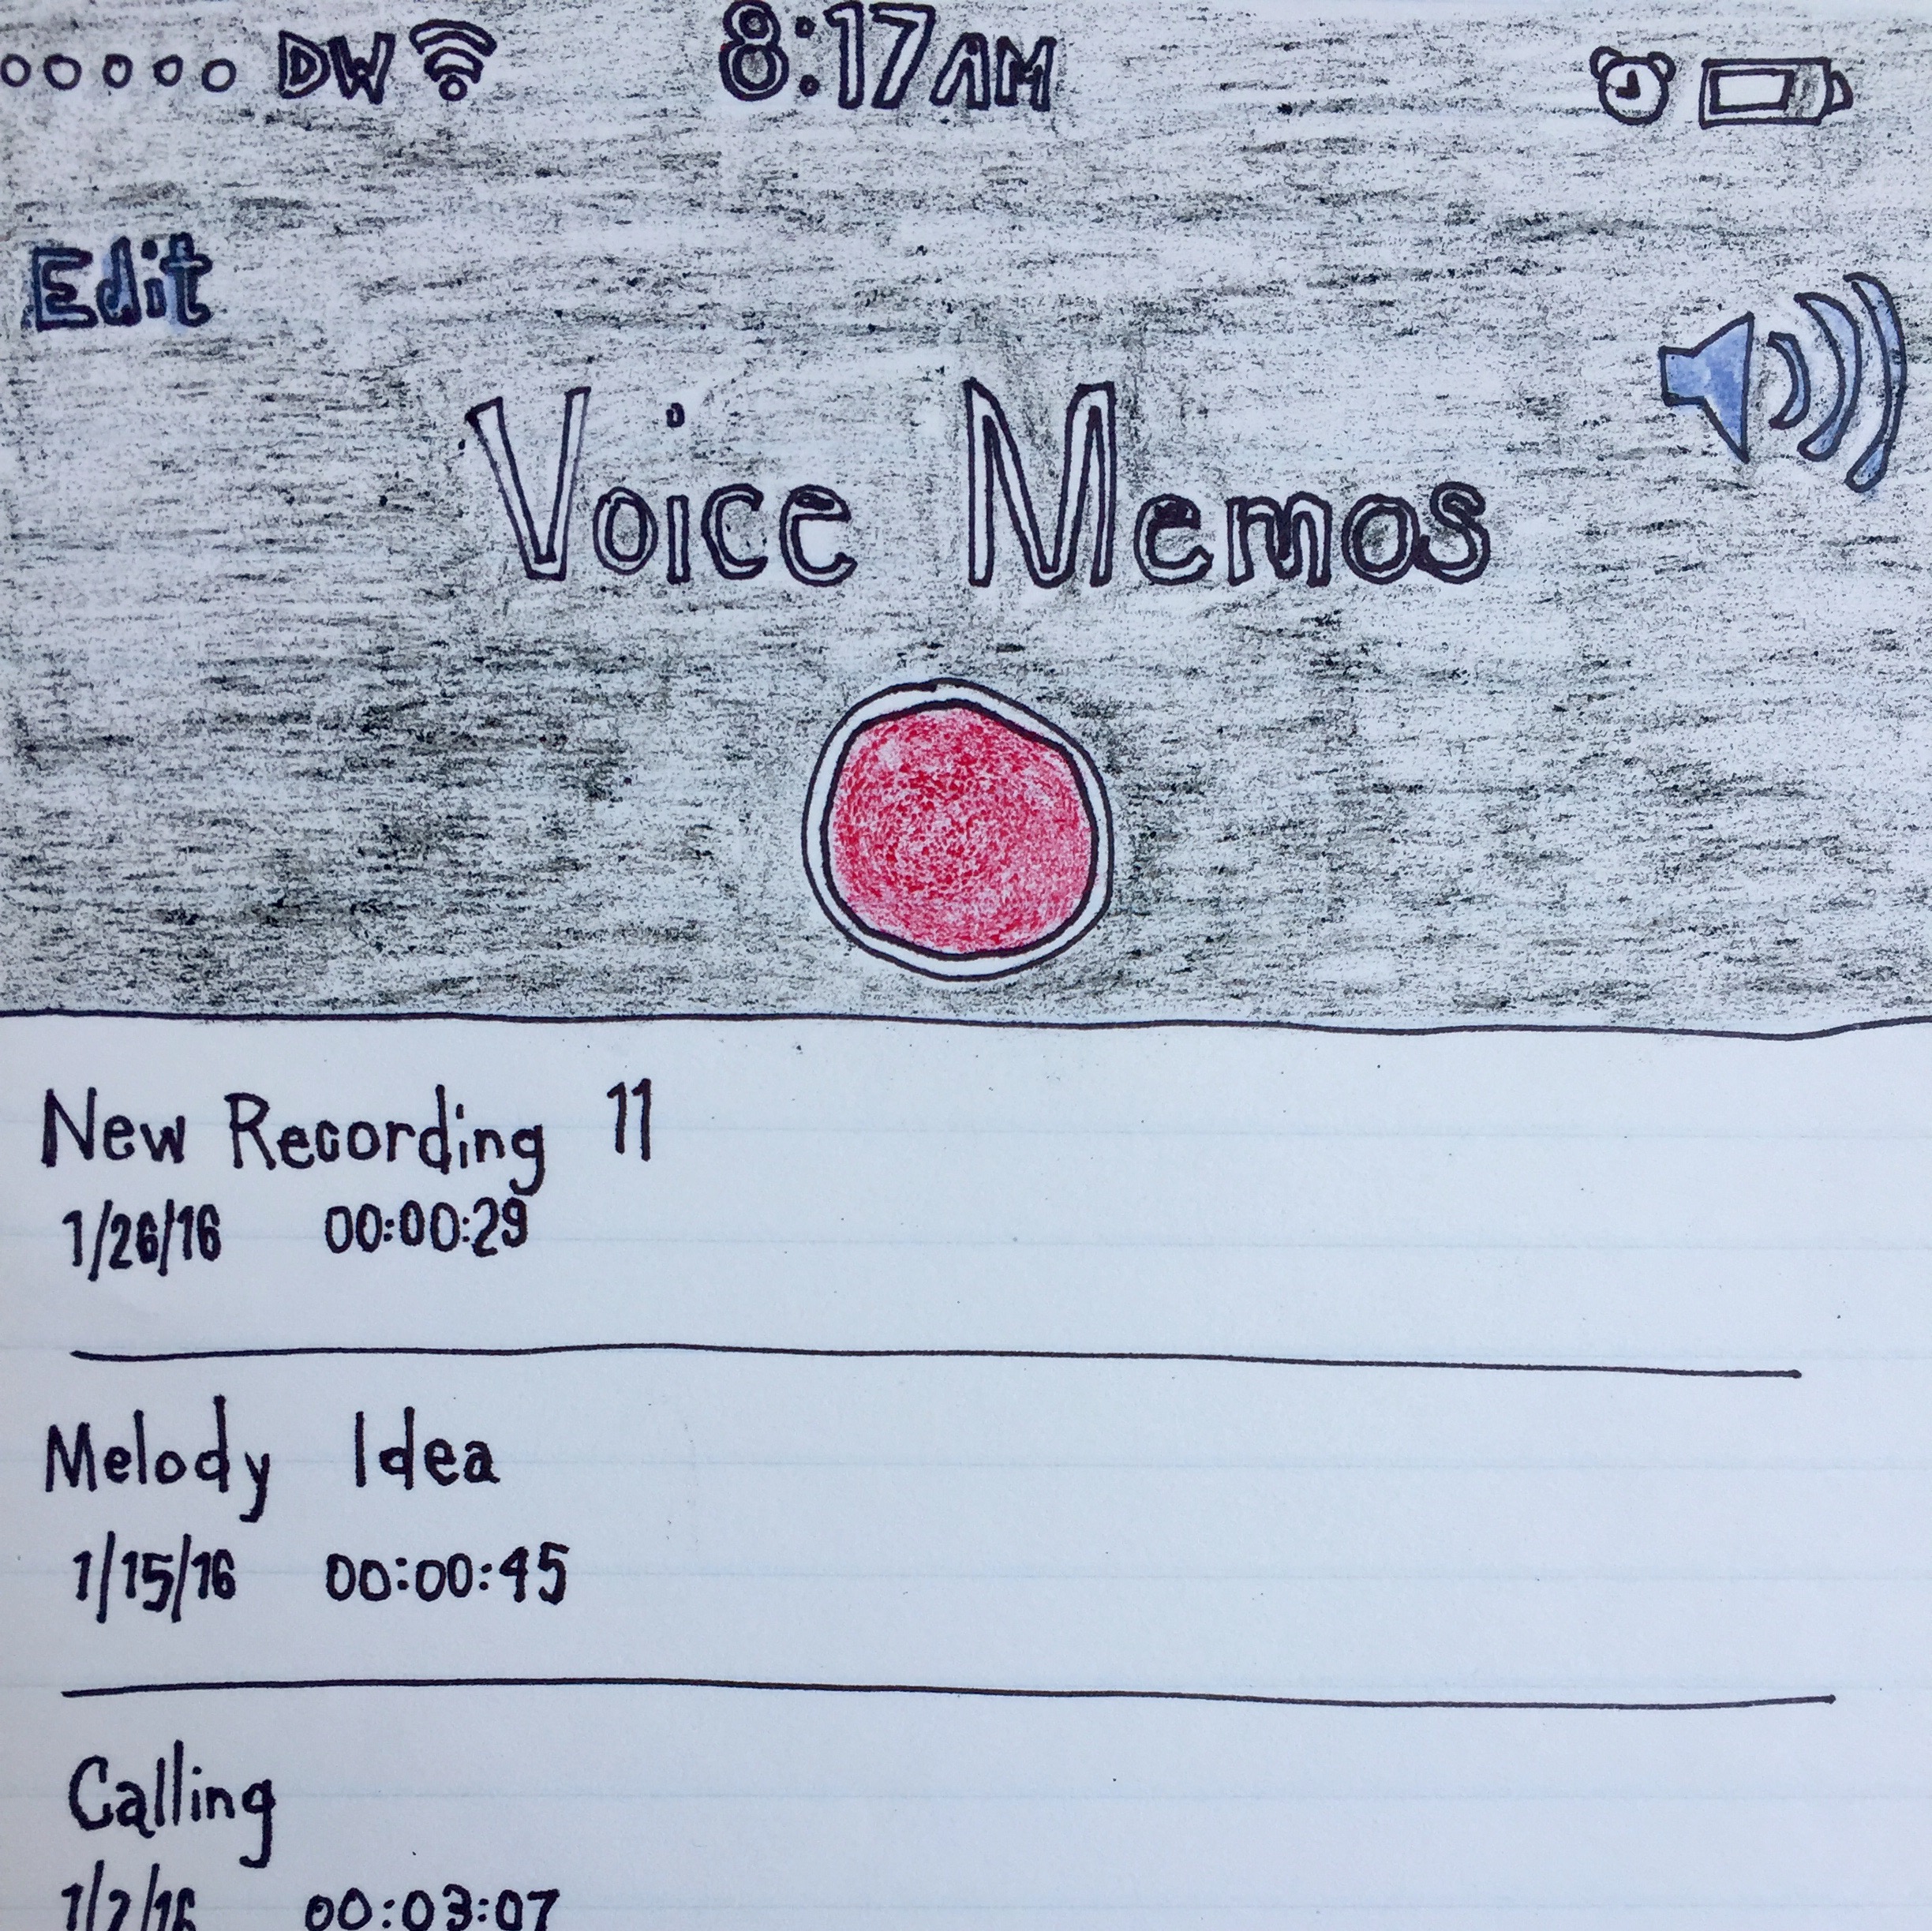 DW 8:17AM
Edit
Voice Memos
New Recording 11
1/26/16 00:00:29
Melody Idea
1/15/16 00:00:45
Calling
1/2/16 00:03:07